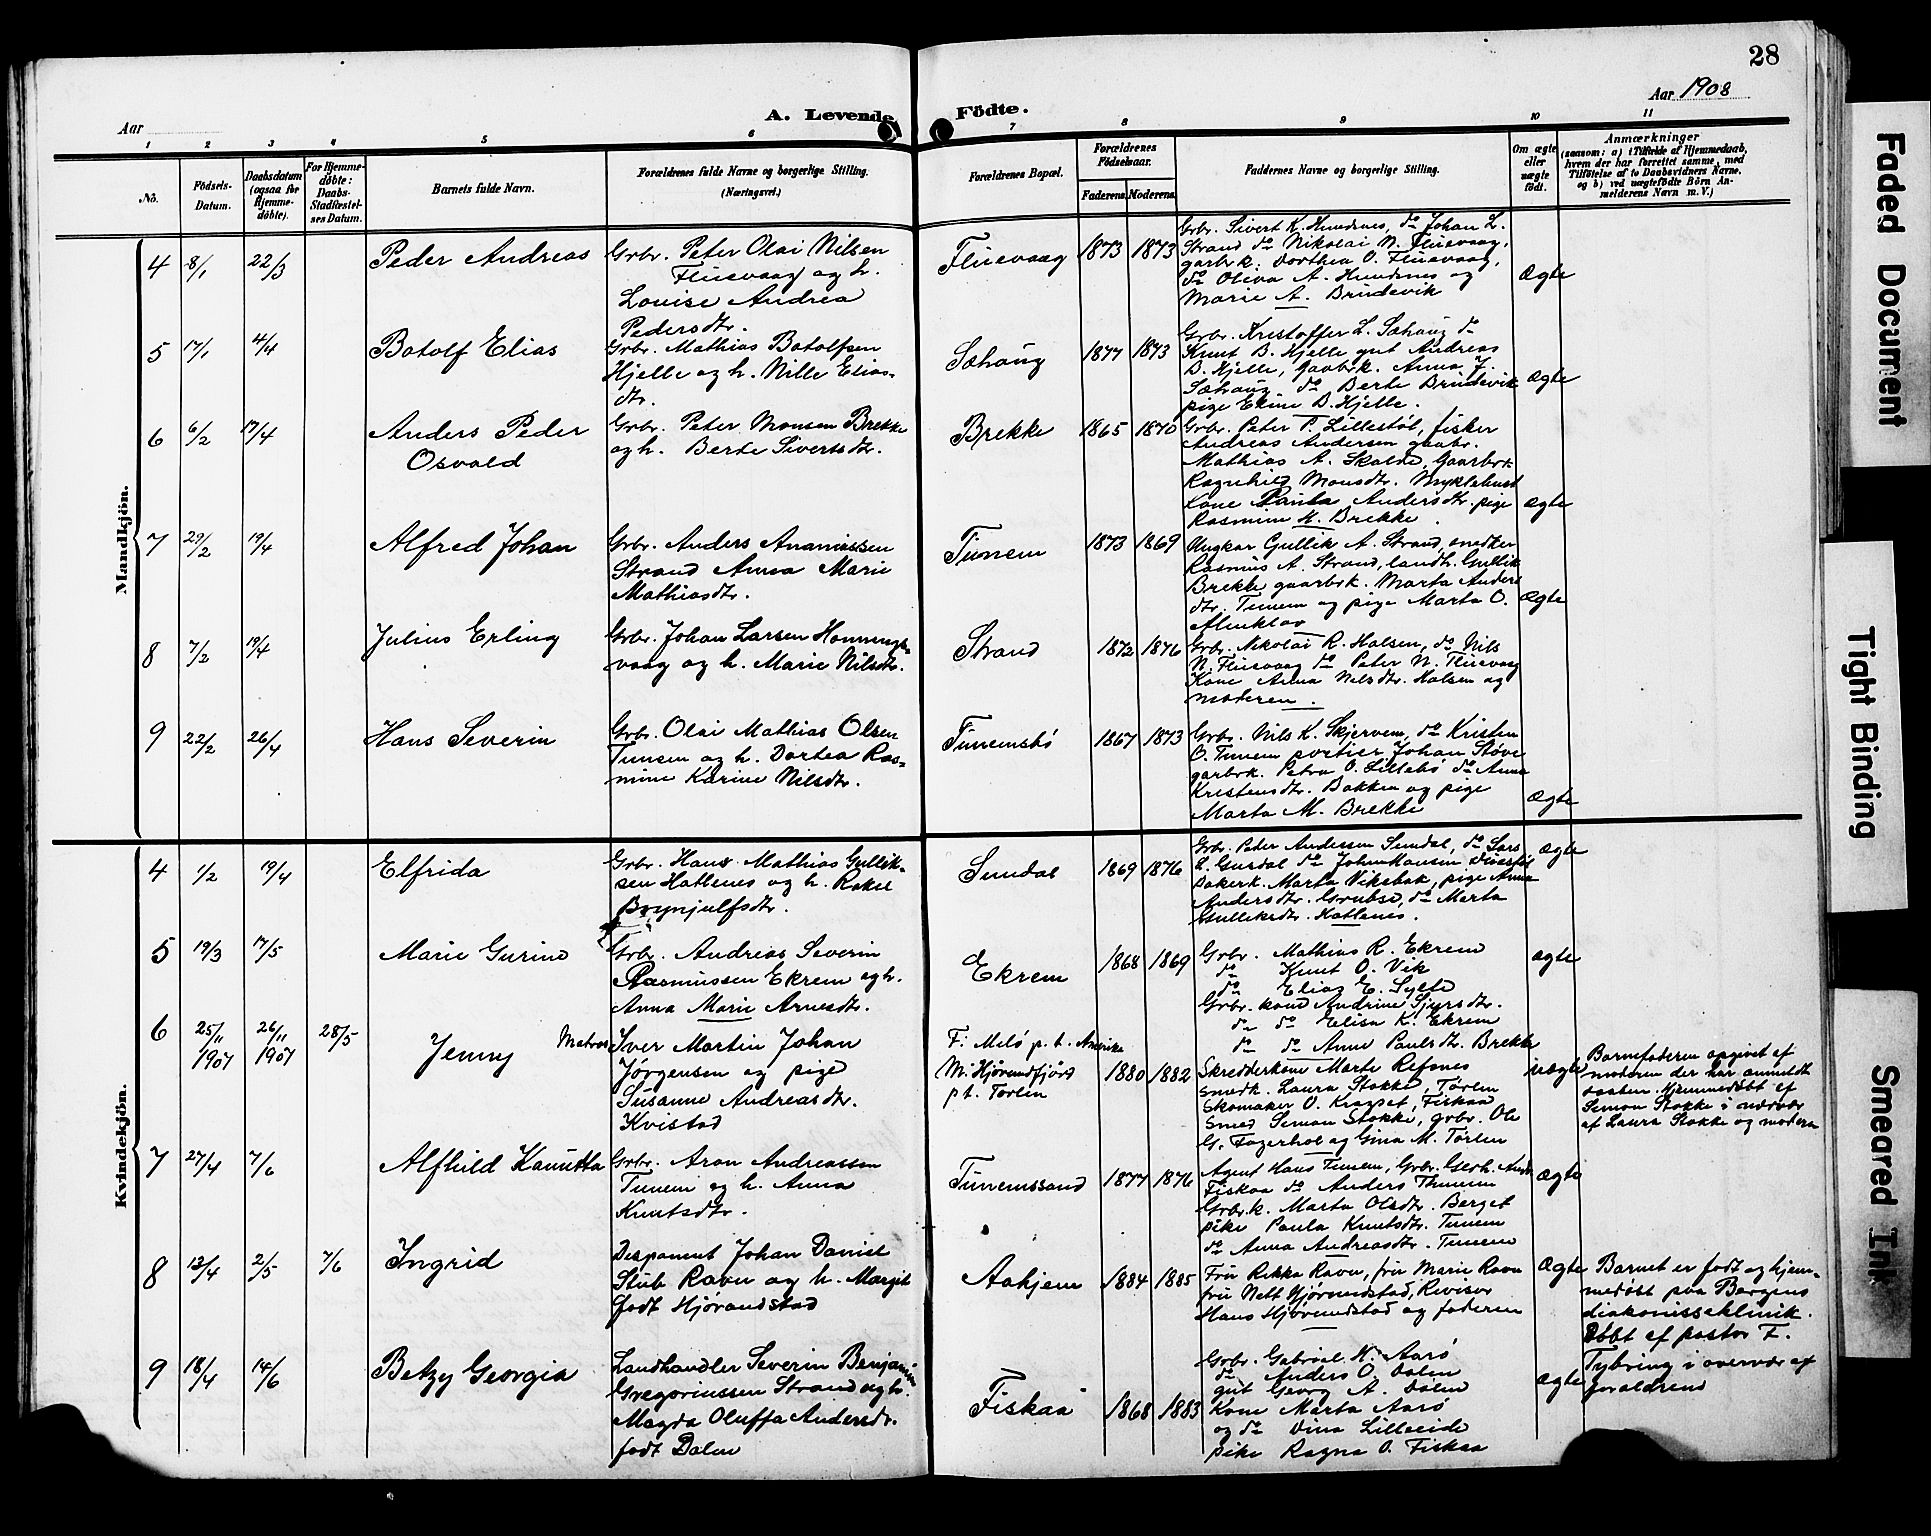 28
Aar 1908
Aar
A. Levende Födte.
1 2 3 4 5 6 7 8 9 10 11
No.
Födsels-
Datum.
Daabsdatum
(ogsaa for
Hjemme-
döbte).
For Hjemme-
døbte:
Daabs-
Stadfæstel-
ses Datum.
Barnets fulde Navn.
Forældrenes fulde Navne og borgerlige Stilling.
(Næringsvei.)
Forældrenes Bopæl.
Forældrenes
Födselsaar.
Faderens. Moderens.
Faddernes Navne og borgerlige Stilling.
Om ægte
eller
uægte
födt.
Anmærkninger
(saasom: a) i Tilfælde af Hjemmedaab,
hvem der har forrettet samme, med
Tilföielse af to Daabsvidners Navne,
og b) ved uægtefödte Börn An-
melderens Navn m. V.)
Mandkjön.
4 8/1 22/3 Peder Andreas
Grbr. Peter Olai Nilsen
Fluevaag og h.
Louise Andrea
Pedersdtr.
Fluevaag 1873 1873
Grbr. Sivert K. Hundnes, do Johan L.
Strand do Nikolai N. Fluevaag,
garbrk. Dorthea O. Fluevaag,
do Oliva A. Hundnes og
Marie A. Brudevik
Ægte
5 17/1 4/4 Botolf Elias
Grbr. Mathias Botolfsen
Hjelle og h. Nille Elias-
dtr.
Sæhaug 1877 1873
Grbr. Kristoffer L. Sæhaug do
Knut B. Hjelle gut Andreas
B. Hjelle, Gaarbrk. Anna J.
Sæhaug do Berte Brudevik
pige Eline B. Hjelle.
Ægte
6 6/2 17/4 Anders Peder
Osvald
Grbr. Peter Monsen Brekke
og h. Berte Sivertsdtr.
Brekke 1865 1870
Grbr. Peter P. Lillestøl, fisker
Andreas Andersen gaabr.
Mathias A. Skolde, Gaarbrk
Ragnhild Monsdtr. Myklebust
Kone Paula Andersdtr. pige
Rasmine M. Brekke.
Ægte
7 29/2 19/4 Alfred Johan
Grbr. Anders Ananiassen
Strand Anna Marie
Mathiasdtr.
Tunem 1873 1869
Ungkar Gullik A. Strand, snedker
Rasmus A. Strand, landh. Gullik
Brekke gaarbrk. Marta Anders
dtr. Tunem og pige Marta O.
Ægte
8 7/2 19/4 Julius Erling
Grbr. Johan Larsen Honningh-
vaag og h. Marie Nilsdtr.
Strand 1872 1876
Grbr. Nikolai R. Halsen, do Nils
N. Fluevaag do Peter N. Fluevaag
Kone Anna Nilsdtr. Halsen og
moderen.
9 22/2 26/4 Hans Severin
Grbr. Olai Mathias Olsen
Tunem og h. Dortea Ras-
mine Karine Nilsdtr.
Tunemsbø 1867 1873
Grbr. Nils K. Skjervem, do Kristen
O. Tunem portier Johan Støve
garbrk. Petra O. Lillebø do Anna
Kristensdtr. Bakken og pige
Marta M. Brekke
Ægte
Kvindekjön.
4 1/2 19/4 Elfrida
Grbr. Hans Mathias Gullik-
sen Hatlenes og h. Rakel
Brynjulfsdtr.
Sundal 1869 1876
Grbr. Peter Andersen Sundal, do Lars
L. Gusdal do Johan Hansen
Bakerk. Marta Viksbak, pige Anna
Andersdtr. Grubse, do Marta
Gulliksdtr. Hatlenes.
Ægte
5 19/3 17/5 Marie Gurine
Grbr. Andreas Severin
Rasmussen Ekrem og h.
Anna Marie Arnesdtr.
Ekrem 1868 1869
Grbr. Mathias R. Ekrem
do Knut O. Vik
do Elias E. Sylte
Grbr. kone Andrine Sjursdtr.
do do Elisa K. Ekrem
do do Anne Paulsdtr. Brekke
Ægte
6 25/11 1907 26/11 1907 28/5 Jenny
Matros Iver Martin Johan
Jørgensen og pige
Susanne Andreasdtr.
Kvistad
F: Melø p. t. Amerika
M: Hjørundfjord
p t. Torlen
1880 1882
Skredderkone Marte Refsnes
smedk. Laura Stokke, Tørlen
Skomaker O. Kragset, Fiskaa
Smed Simon Stokke, grbr. Ole
G. Fagerhol og Gina M. Tørlen
uægte
Barnefaderen opgivet af
moderen der har anmeldt
saaten. Hjemmedøbt af
Simon Stokke i nærvær
af Laura Stokke og modern
7 27/4 7/6 Alfhild Kanutta
Grbr. Aron Andreassen
Tunem og h. Anna
Knutsdtr.
Tunemssand 1877 1876
Agent Hans Tunem, Grbr. Gerh. And.
Fiskaa do Anders Thunem
Grbr.k. Marta Olsdtr. Berget
pike Paula Knutsdtr. Tunem
do Anna Andreasdtr. Tunem
Ægte
8 12/4 2/5 7/6 Ingrid
Desponent Johan Daniel
Stub Ravn og h. Margit
født Hjørandstad
Aahjem 1884 1885
Fru Rikka Ravn, fru Marie Ravn
fru Nett Hjørundstad, Revisor
Hans Hjørundstad og faderen
Ægte
Barnet er født og hjem-
medøbt paa Bergens
diakonisseklinik.
Døbt af pastor F.
Tybring i overvær af
forældrene
9 18/4 14/6 Betzy Georgia
Landhandler Severin Benjamin
Gregoriussen Strand og h.
Magda Oluffa Andersdtr.
født Dalen
Fiskaa 1868 1883
Grbr. Gabriel H. Aarø
do Anders O. Dalen
gut Georg A. Dalen
Kone Marta Aarø
og do Dina Lilleeide
pike Ragna O. Fiskaa
Ægte
Faded Document
Tight Binding
Smeared Ink